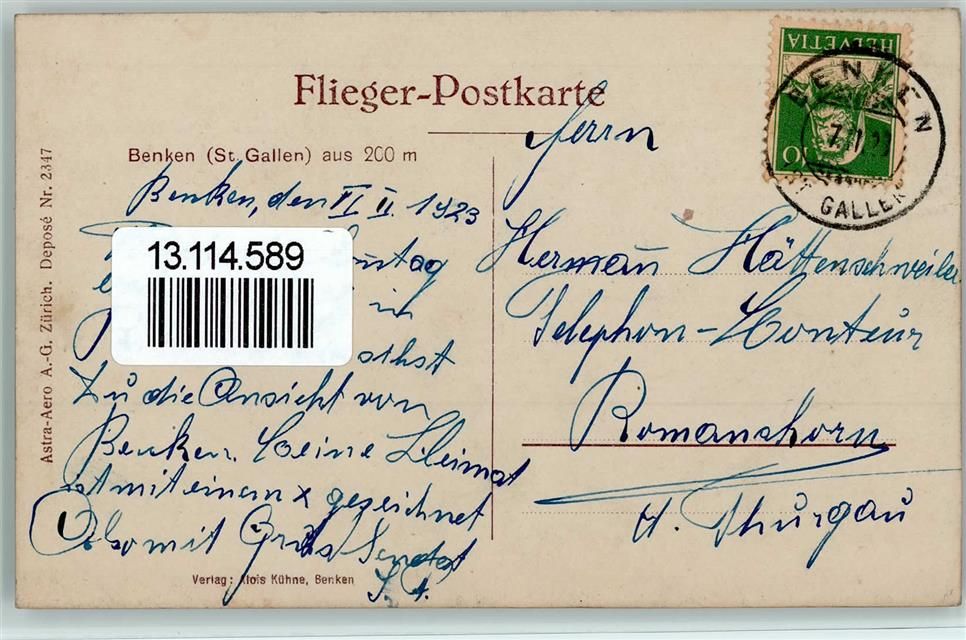 Flieger-Postkarte
Benken (St. Gallen) aus 200 m
Astra-Aero A.-G. Zürich. Deposé Nr. 2347
HELVETIA
10
BENKEN
GALLEN
Benken, den VI II. 1923
13.114.589
ich
Du die Ansicht von
Benken. Meine Heimat
ist mit einem x gezeichnet
Also mit Gruss Sendet
Verlag: Alois Kühne, Benken
Herrn
Herman Hättenschweiler
Telephon-Monteur
Romanshorn
Kt. Thurgau